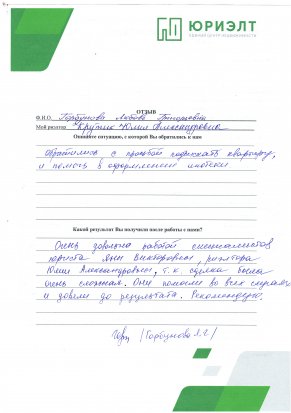 ЮРИЭЛТ
ЕДИНЫЙ ЦЕНТР НЕДВИЖИМОСТИ
ОТЗЫВ
Ф.И.О. Горбунова Любовь
Мой риэлтор Юлия Александровна
Опишите ситуацию, с которой Вы обратились к нам
Обратились с просьбой подыскать квартиру,
и помочь в оформлении ипотеки
Какой результат Вы получили после работы с нами?
Очень довольна работой специалистов
юриста Яны Викторовны, риэлтора
Юлии Александровны, т.к. сделка была
очень сложная. Они помогли во всех случаях
и довели до результата. Рекомендую.
(Горбунова Л.Г)